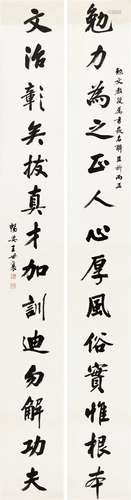 勉力為之正人心厚風俗實惟根本
文治彰矣拔真才加訓迪勿解功夫
暢安王世襄